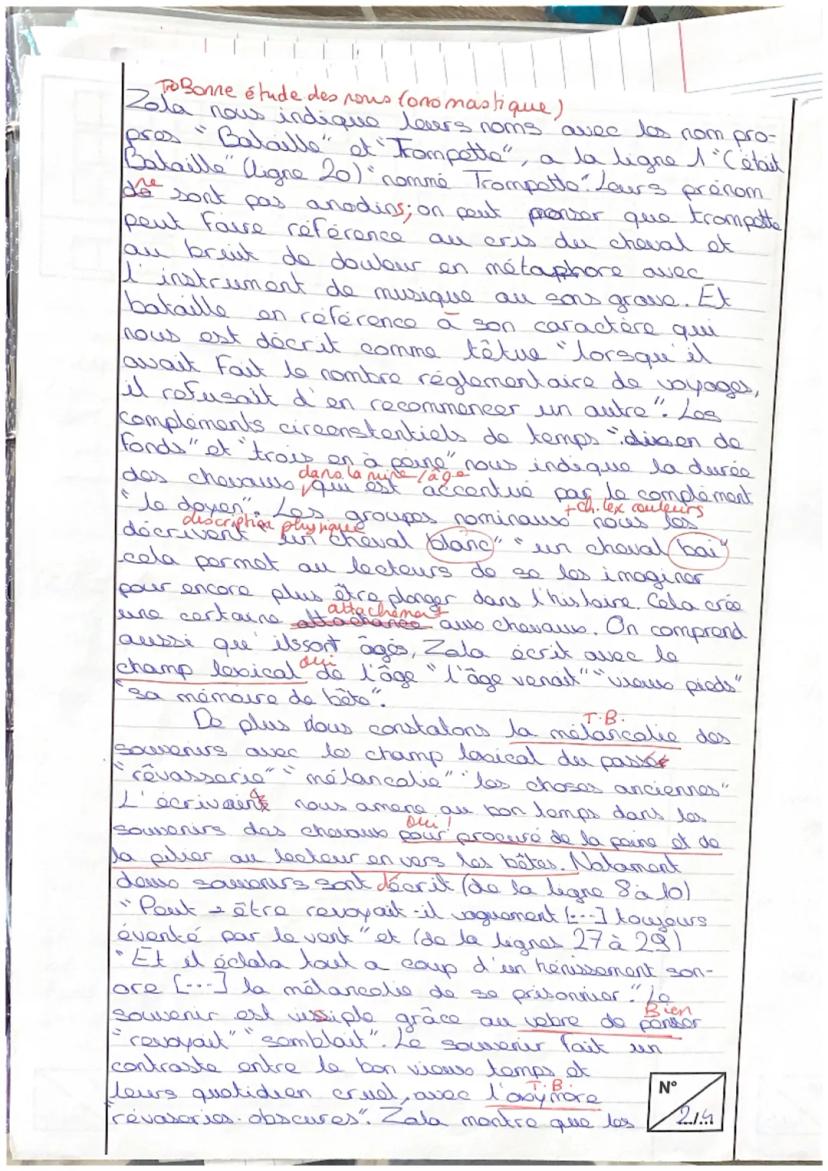 TB Bonne étude des noms (onomastique)
Zola nous indique leurs noms avec les nom pro-
pres "Bataille" et "Trompette", a la ligne 1 "C'était
Bataille" (ligne 20) "nommé Trompette". Leurs prénom
ne sont pas anodins; on peut penser que trompette
peut faire référence au cris du cheval et
au bruit de douleur en métaphore avec
l'instrument de musique au sons grave. Et
bataille en référence à son caractère qui
nous est décrit comme têtue "lorsqu'il
avait fait le nombre réglementaire de voyages,
il refusait d'en recommencer un autre". Les
compléments circonstentiels de temps "dixen de
fonds" et "trois en à peine" nous indique la durée
dans la mine / âge
des chevaux, qui est accentué par le complément
+ ch. lex couleurs
"le doyen". Les groupes nominaux nous les
description physique
décrivent "un cheval blanc" "un cheval bai"
cela permet au lecteurs de se les imaginer
pour encore plus être plonger dans l'histoire. Cela crée
attachement
une certaine attachance aux chevaux. On comprend
aussi qu'ils sont âgés, Zola écrit avec le
oui
champ lexical de l'âge "l'âge venait" "vieux pieds"
"sa mémoire de bête".
T.B.
De plus nous constatons la mélancolie des
souvenirs avec les champ lexical du passé
"rêvasserie" "mélancolie" "les choses anciennes"
L'écrivain nous amene au bon temps dans les
oui !
souvenirs des chevaux pour procuré de la peine et de
la pitier au lecteur en vers les bêtes. Notament
deux souvenirs sont décrit (de la ligne 8 à 10)
"Peut-être revoyait-il vaguement [...] toujours
éventé par le vent" et (de la lignes 27 à 29)
"Et il éclata tout a coup d'un hénissement son-
ore [...] la mélancolie de se prisonnier." Le
Bien
souvenir est visible grâce au verbe de penser
"revoyait" "semblait". Le souvenir fait un
contraste entre le bon vieux temps et
T.B.
leurs quotidien cruel, avec l'oxymore
"rêvaseries obscures". Zola montre que les
N°
2/4